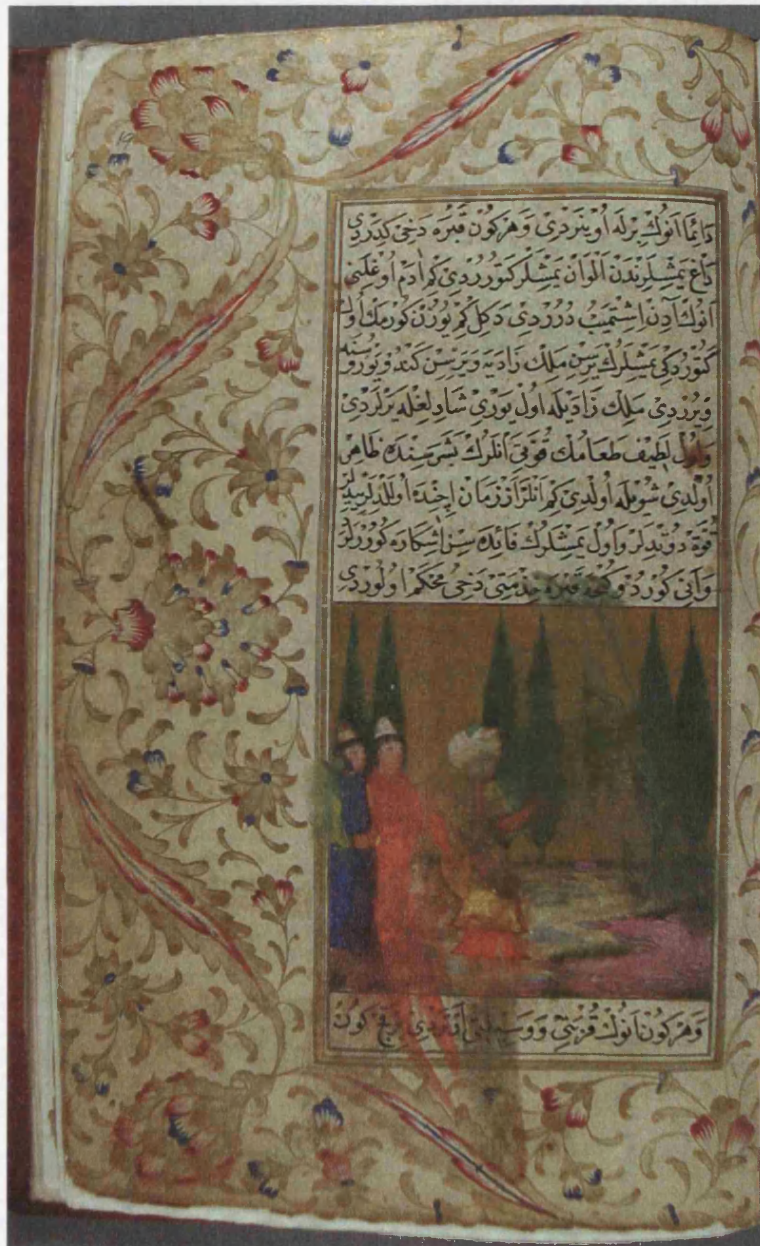 دَائِمَا اَنُوكْ بِرْلَه اُوينَرْدِي وَهَرْ كُونْ قُبَّرَه دَخِي كَدَرْدِي
طَاغ يَمِشْلَرِنْدَنْ اَلْوَانْ يَمِشْلَرْ كَتُورُرْدِي كِمْ اٰدَمْ اُوغْلَنِي
اَنُوكْ آدِنْ اِشِتْمَيِبْ دُرُرْدِي دَكِلْ كِمْ يُوزُنْ كُورمَكْ اُولْ
كَتُورْدُكِي يَمِشْلَرُكْ بِرِسِنْ مَلِكْ زَادَيَه وَبِرِسِنْ كَنْدُو يَورُوسِنَه
وِيرُرْدِي مَلِكْ زَادَيِلَه اُولْ يَورِي شَادِلِغِلَه يِرْلَرْدِي
وَاُولْ لَطِيفْ طَعَامُكْ قُوَّتِي اَنْلَرُكْ بَشَرَسِنْدَه ظَاهِرْ
اُولْدِي شُويلَه اُولْدِي كِمْ اَنْلَرْ اَزْ زَمَانْ اِچِنْدَه
قُوَّة دُوتْدِيلَرْ وَاُولْ يَمِشْلَرُكْ فَائِدَه سِنْ اٰشِكَارَه كُورْدِلَرْ
وَاَنِي كُورْدُوكْچَه قُبَّرَه خِدْمَتِي دَخِي مُحْكَمْ اُولُورْدِي
وَهَرْ كُونْ اَنُوكْ قُرْبَتِي وَوَسِيلَتِي اَرْتَرْدِي بِرْ قَچْ كُونْ